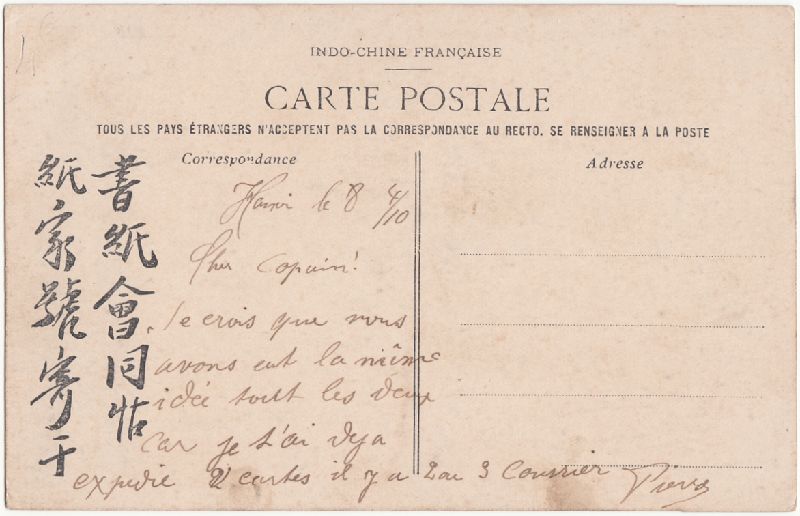 INDO-CHINE FRANÇAISE
CARTE POSTALE
TOUS LES PAYS ÉTRANGERS N'ACCEPTENT PAS LA CORRESPONDANCE AU RECTO. SE RENSEIGNER A LA POSTE
Correspondance
Adresse
書紙會同帖
紙家號寄干
Hanoi le 8 4/10
Cher Copain!
Je crois que nous
avons eut la même
idée tout les deux
car je t'ai deja
expedie 2 cartes il y a 2 au 3 Courrier